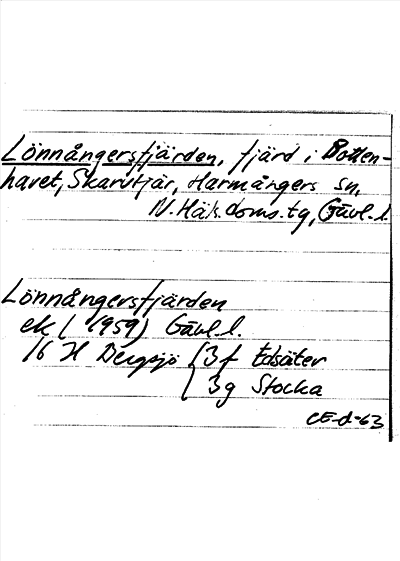 Lönnångersfjärden, fjärd i Botten-
havet, Skarvtjär, Harmångers sn,
N. Häls. doms. tg, Gävl. l.
Lönnångersfjärden
ek ( 1959) Gävl. l.
16 H Bergsjö { 3 f Edsäter
3g Stocka
CE-d-63